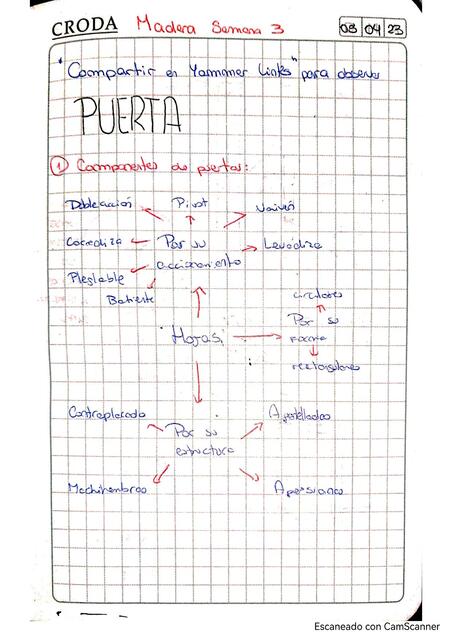 CRODA Madera Semana 3 03 04 23
"Compartir en Yammer Links" para observar
PUERTA
① Componentes de puertas:
Pivot
Vaivén
Corrediza
Por su
accionamiento
Levadiza
Plegable
Batiente
circulares
Por su
forma
Hojas
rectangulares
Contraplacado
Por su
estructura
Machihembrao
Apersiana
Escaneado con CamScanner